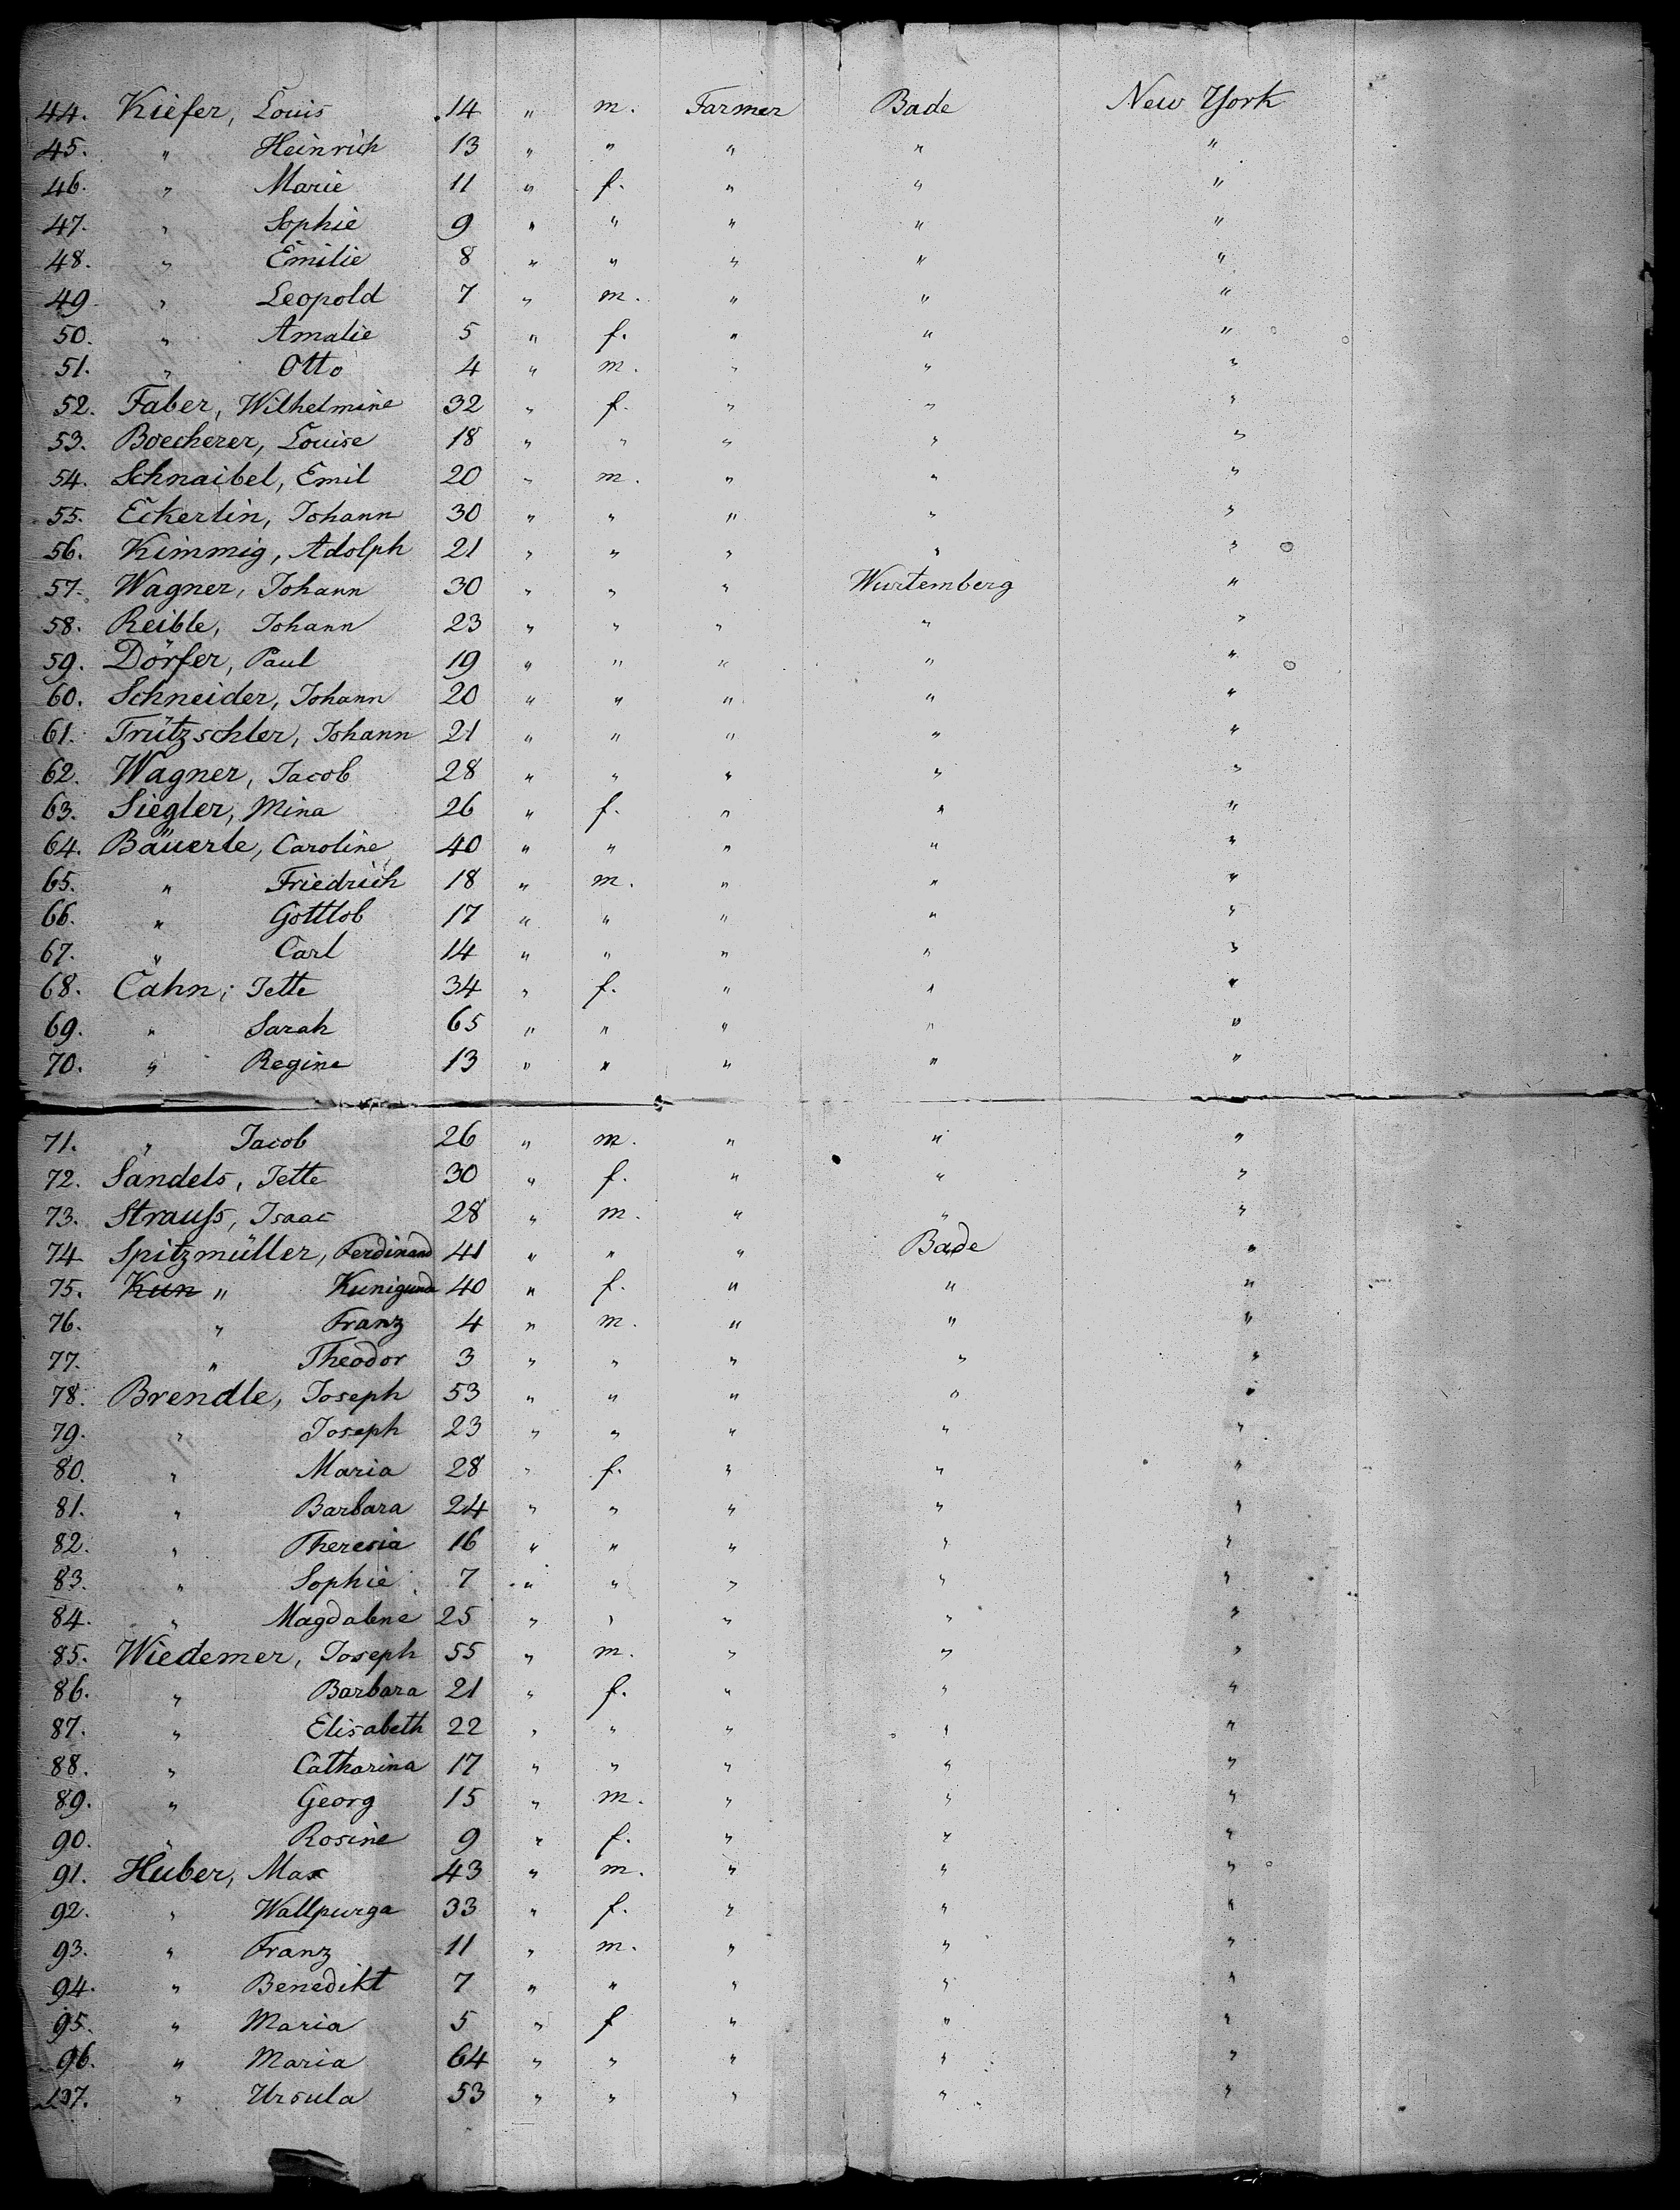 44. Kiefer, Louis 14 " m. Farmer Bade New York
45. " Heinrich 13 " " " " "
46. " Marie 11 " f. " " "
47. " Sophie 9 " " " " "
48. " Emilie 8 " " " " "
49. " Leopold 7 " m. " " "
50. " Amalie 5 " f. " " "
51. " Otto 4 " m. " " "
52. Faber, Wilhelmine 32 " f. " " "
53. Boecherer, Louise 18 " " " " "
54. Schnaibel, Emil 20 " m. " " "
55. Eckerlin, Johann 30 " " " " "
56. Kimmig, Adolph 21 " " " " "
57. Wagner, Johann 30 " " " Wurtemberg "
58. Reible, Johann 23 " " " " "
59. Dörfer, Paul 19 " " " " "
60. Schneider, Johann 20 " " " " "
61. Trützschler, Johann 21 " " " " "
62. Wagner, Jacob 28 " " " " "
63. Siegler, Mina 26 " f. " " "
64. Bäuerle, Caroline 40 " " " " "
65. " Friedrich 18 " m. " " "
66. " Gottlob 17 " " " " "
67. " Carl 14 " " " " "
68. Cahn, Jette 34 " f. " " "
69. " Sarah 65 " " " " "
70. " Regine 13 " " " " "
71. " Jacob 26 " m. " " "
72. Sandels, Jette 30 " f. " " "
73. Strauß, Isaac 28 " m. " " "
74. Spitzmüller, Ferdinand 41 " " " Bade "
75. Kun " Kunigunda 40 " f. " " "
76. " Franz 4 " m. " " "
77. " Theodor 3 " " " " "
78. Brendle, Joseph 53 " " " " "
79. " Joseph 23 " " " " "
80. " Maria 28 " f. " " "
81. " Barbara 24 " " " " "
82. " Theresia 16 " " " " "
83. " Sophie 7 " " " " "
84. " Magdalene 25 " " " " "
85. Wiedemer, Joseph 55 " m. " " "
86. " Barbara 21 " f. " " "
87. " Elisabeth 22 " " " " "
88. " Catharina 17 " " " " "
89. " Georg 15 " m. " " "
90. " Rosine 9 " f. " " "
91. Huber, Max 43 " m. " " "
92. " Wallpurga 33 " f. " " "
93. " Franz 11 " m. " " "
94. " Benedikt 7 " " " " "
95. " Maria 5 " f " " "
96. " Maria 64 " " " " "
197. " Ursula 53 " " " " "